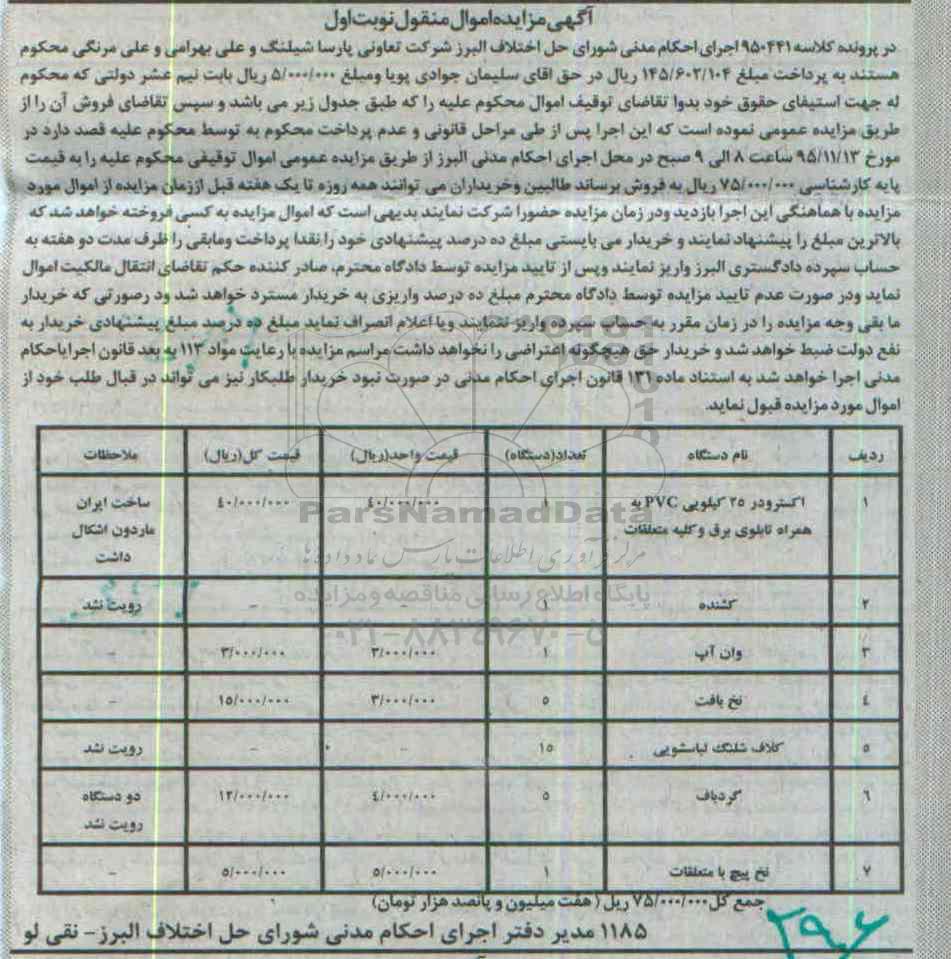 آگهی مزایده اموال منقول نوبت اول
در پرونده کلاسه ۹۵۰۴۴۱ اجرای احکام مدنی شورای حل اختلاف البرز شرکت تعاونی پارسا شیلنگ و علی بهرامی و علی مرنگی محکوم
هستند به پرداخت مبلغ ۱۴۵/۶۰۲/۱۰۴ ریال در حق اقای سلیمان جوادی پویا ومبلغ ۵/۰۰۰/۰۰۰ ریال بابت نیم عشر دولتی که محکوم
له جهت استیفای حقوق خود بدوا تقاضای توقیف اموال محکوم علیه را که طبق جدول زیر می باشد و سپس تقاضای فروش آن را از
طریق مزایده عمومی نموده است که این اجرا پس از طی مراحل قانونی و عدم پرداخت محکوم به توسط محکوم علیه قصد دارد در
مورخ ۹۵/۱۱/۱۳ ساعت ۸ الی ۹ صبح در محل اجرای احکام مدنی البرز از طریق مزایده عمومی اموال توقیفی محکوم علیه را به قیمت
پایه کارشناسی ۷۵/۰۰۰/۰۰۰ ریال به فروش برساند طالبین وخریداران می توانند همه روزه تا یک هفته قبل اززمان مزایده از اموال مورد
مزایده با هماهنگی این اجرا بازدید ودر زمان مزایده حضورا شرکت نمایند بدیهی است که اموال مزایده به کسی فروخته خواهد شد که
بالاترین مبلغ را پیشنهاد نمایند و خریدار می بایستی مبلغ ده درصد پیشنهادی خود را نقدا پرداخت ومابقی را ظرف مدت دو هفته به
حساب سپرده دادگستری البرز واریز نمایند وپس از تایید مزایده توسط دادگاه محترم، صادر کننده حکم تقاضای انتقال مالکیت اموال
نماید ودر صورت عدم تایید مزایده توسط دادگاه محترم مبلغ ده درصد واریزی به خریدار مسترد خواهد شد ود رصورتی که خریدار
ما بقی وجه مزایده را در زمان مقرر به حساب سپرده واریز ننمایند ویا اعلام انصراف نماید مبلغ ده درصد مبلغ پیشنهادی خریدار به
نفع دولت ضبط خواهد شد و خریدار حق هیچگونه اعتراضی را نخواهد داشت مراسم مزایده با رعایت مواد ۱۱۳ به بعد قانون اجرایاحکام
مدنی اجرا خواهد شد به استناد ماده ۱۳۱ قانون اجرای احکام مدنی در صورت نبود خریدار طلبکار نیز می تواند در قبال طلب خود از
اموال مورد مزایده قبول نماید.
ردیف نام دستگاه تعداد(دستگاه) قیمت واحد(ریال) قیمت کل(ریال) ملاحظات
۱ اکسترودر ۲۵ کیلویی PVC به ۱ ۴۰/۰۰۰/۰۰۰ ۴۰/۰۰۰/۰۰۰ ساخت ایران
همراه تابلوی برق وکلیه متعلقات ماردون اشکال
داشت
ParsNamadData
مرکز فرآوری اطلاعات پارس نماد داده ها
پایگاه اطلاع رسانی مناقصه و مزایده
۲ کشنده ۱ - - رویت نشد
۰۲۱-۸۸۳۴۹۶۷۰-۵
۳ وان آب ۱ ۳/۰۰۰/۰۰۰ ۳/۰۰۰/۰۰۰ -
۴ نخ بافت ۵ ۳/۰۰۰/۰۰۰ ۱۵/۰۰۰/۰۰۰ -
۵ کلاف شلنگ لباسشویی ۱۵ - - رویت نشد
۶ گردباف ۵ ۴/۰۰۰/۰۰۰ ۱۲/۰۰۰/۰۰۰ دو دستگاه
رویت نشد
۷ نخ پیچ با متعلقات ۱ ۵/۰۰۰/۰۰۰ ۵/۰۰۰/۰۰۰ -
جمع کل ۷۵/۰۰۰/۰۰۰ ریل ( هفت میلیون و پانصد هزار تومان)
۱۱۸۵ مدیر دفتر اجرای احکام مدنی شورای حل اختلاف البرز - نقی لو
۲۹۰۶